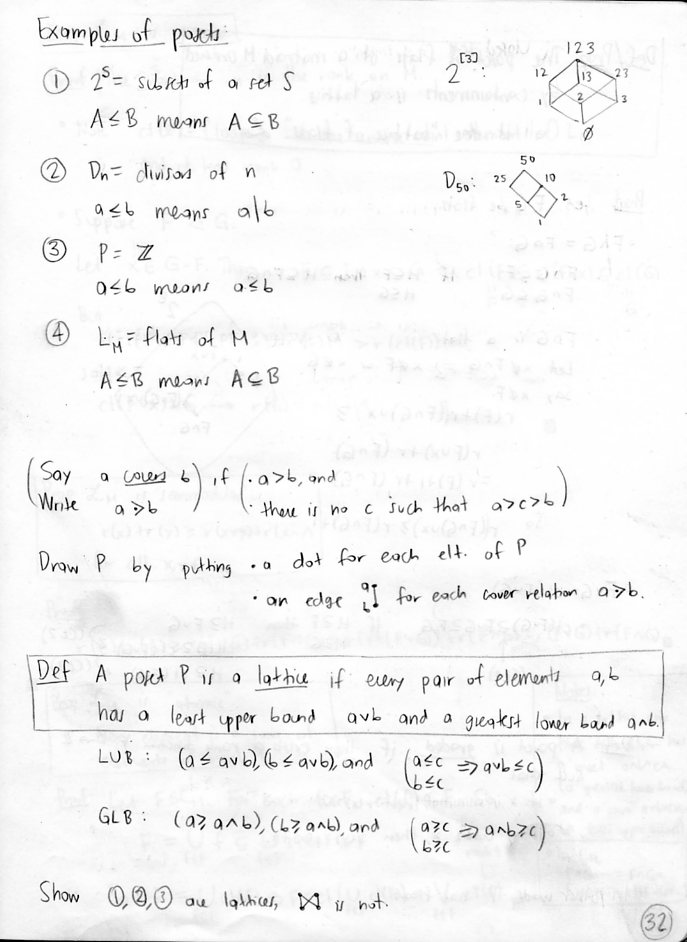 Examples of posets:
① 2^S = subsets of a set S
A ≤ B means A ⊆ B
2^[3]:
123
12 13 23
1 2 3
∅
② Dn = divisors of n
a ≤ b means a|b
D50:
50
25 10
5 2
1
③ P = ℤ
a ≤ b means a ≤ b
④ L_M = flats of M
A ≤ B means A ⊆ B
(Say a covers b) if (· a > b, and
(Write a ⋗ b) (· there is no c such that a > c > b)
Draw P by putting · a dot for each elt. of P
· an edge a b for each cover relation a ⋗ b.
Def A poset P is a lattice if every pair of elements a, b
has a least upper bound a∨b and a greatest lower bound a∧b.
LUB: (a ≤ a∨b), (b ≤ a∨b), and (a ≤ c ⇒ a∨b ≤ c)
b ≤ c
GLB: (a ≥ a∧b), (b ≥ a∧b), and (a ≥ c ⇒ a∧b ≥ c)
b ≥ c
Show ①, ②, ③ are lattices, is not.
32